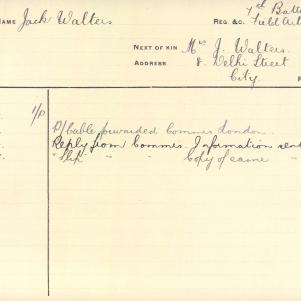 NAME Jack Walters
7th Batte
REG. &C. Field Art
NEXT OF KIN Mrs J. Walters.
ADDRESS 8. Delhi Street
City
1/P
D/cable forwarded Commer London.
Reply from Commes. Information sent
"Slip" " " Copy of same "